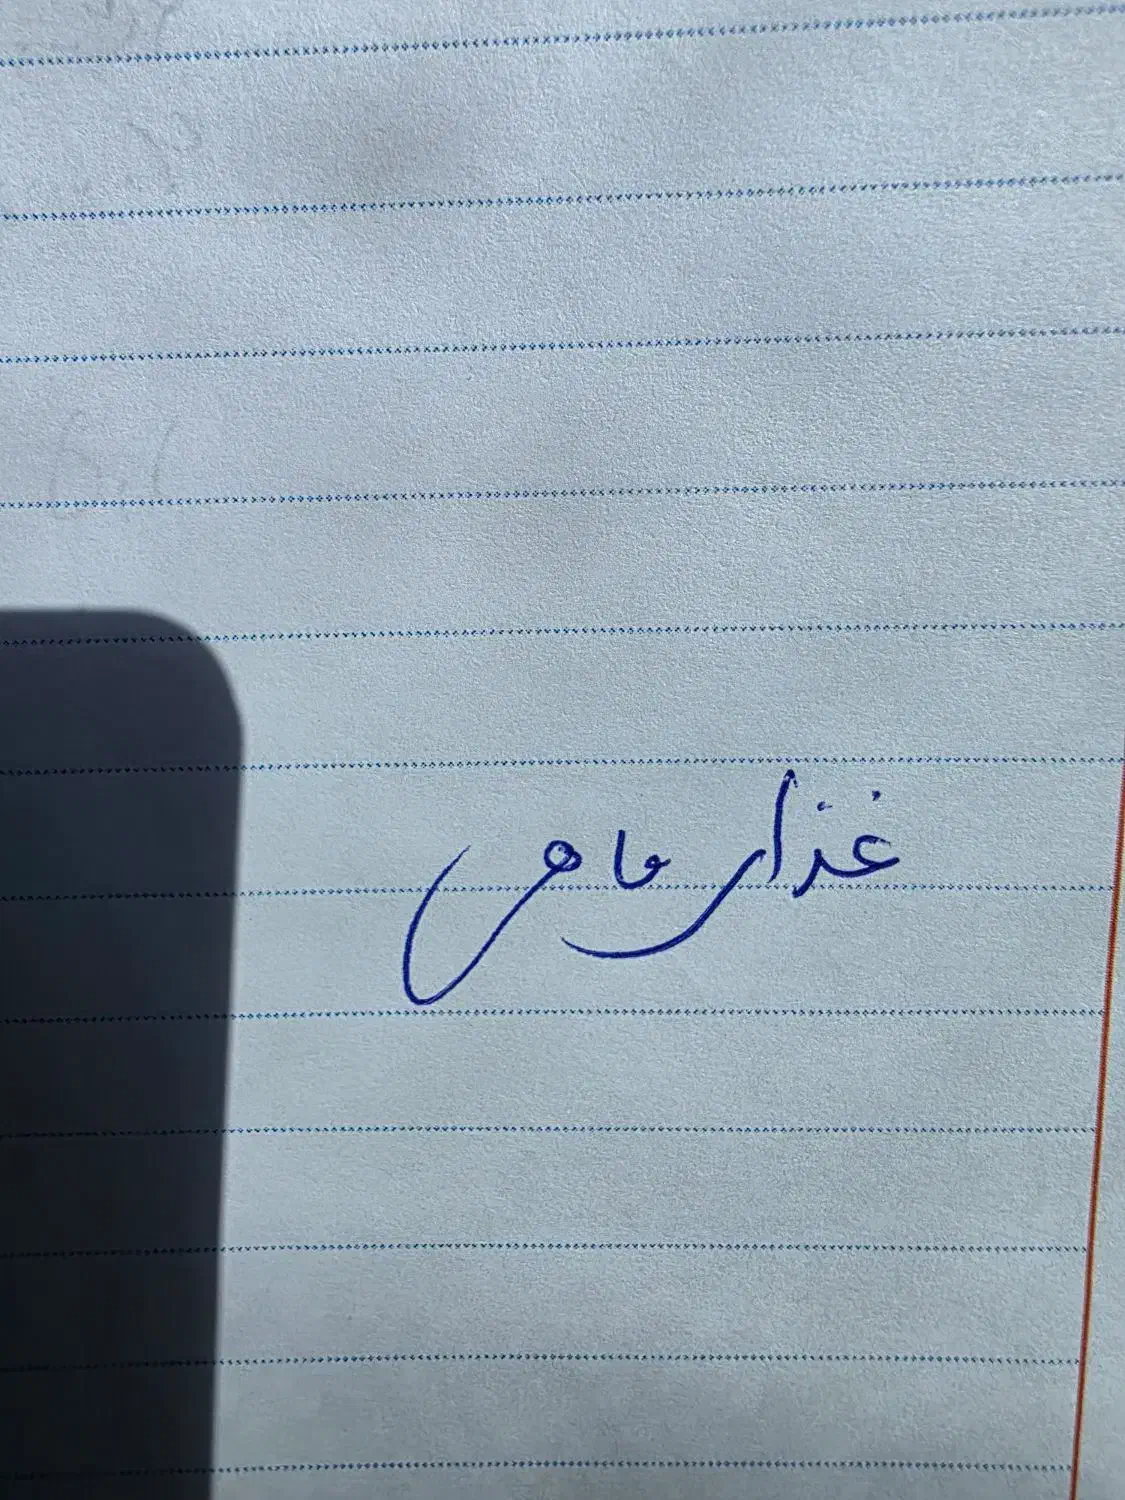 غذای ماهی